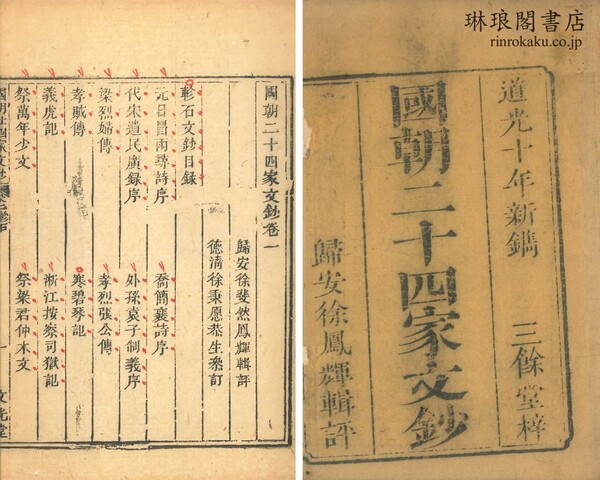 琳琅閣書店
rinrokaku.co.jp
道光十年新鐫 三餘堂梓
國朝二十四家文鈔
歸安徐鳳輝輯評
國朝二十四家文鈔卷一
歸安徐斐然鳳輝輯評
德清徐秉愿恭生叅訂
軫石文鈔目錄
元日冒雨尋詩序 喬簡襄詩序
代宋遺民廣錄序 外孫袁子制義序
梁烈婦傳 孝烈張公傳
孝賊傳 寒碧琴記
義虎記 浙江按察司獄記
祭萬年少文 祭梁君仲木文
一 文光堂